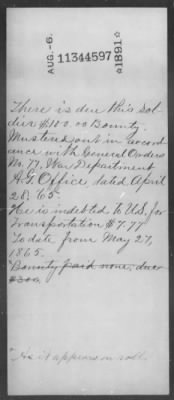 AUG.-6.
11344597
☆1891☆
There is due this sol-
dier $100.00 Bounty.
Mustered out in accord-
ance with General Orders
No. 77. War Department
A.G. Office dated April
28. 65.
He is indebted to U.S. for
Transportation $7.77
To date from May 27,
1865.
"Bounty paid none, due
$300
"As it appears on roll.